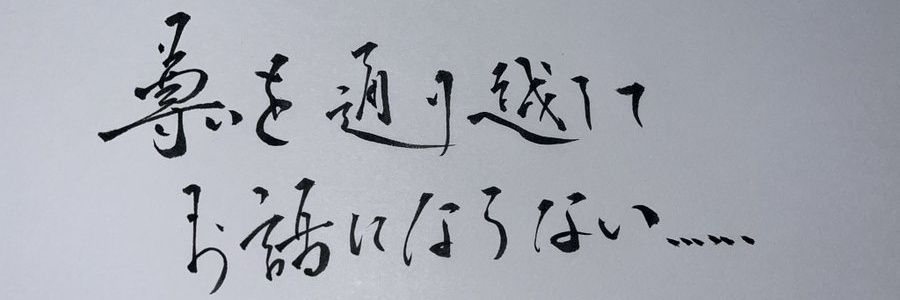 尊いを通り越して
お話にならない……